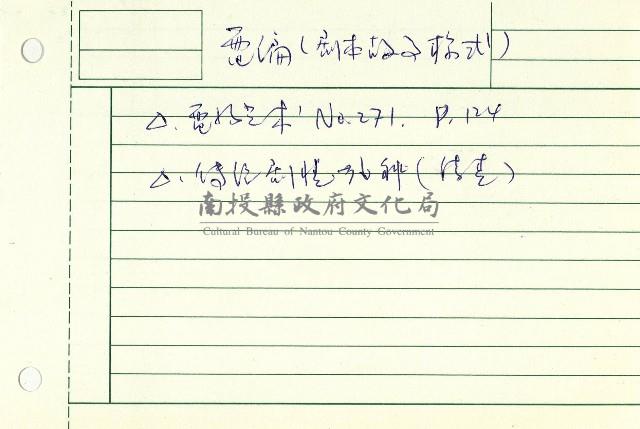 電編(劇本故事樣式)
△. 電影旬本' No.271. P.124
△. 劇情 36種(
南投縣政府文化局
Cultural Bureau of Nantou County Government